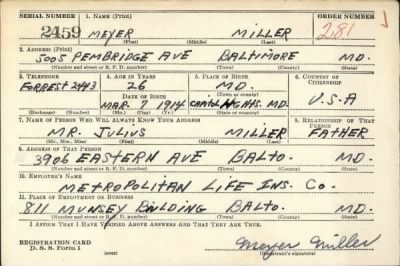 SERIAL NUMBER 1. NAME (Print) ORDER NUMBER
2459 MEYER MILLER 281
(First) (Middle) (Last)
2. ADDRESS (Print)
5005 PEMBRIDGE AVE BALTIMORE MD.
(Number and street or R. F. D. number) (Town) (County) (State)
3. TELEPHONE 4. AGE IN YEARS 5. PLACE OF BIRTH 6. COUNTRY OF CITIZENSHIP
FORREST 2443 26 MD.
DATE OF BIRTH (Town or county)
MAR. 7 1914 HGHTS. MD. U.S.A
(Exchange) (Number) (Mo.) (Day) (Yr.) (State or country)
7. NAME OF PERSON WHO WILL ALWAYS KNOW YOUR ADDRESS 8. RELATIONSHIP OF THAT PERSON
MR. JULIUS MILLER FATHER
(Mr., Mrs., Miss) (First) (Middle) (Last)
9. ADDRESS OF THAT PERSON
3906 EASTERN AVE BALTO. MD.
(Number and street or R. F. D. number) (Town) (County) (State)
10. EMPLOYER'S NAME
METROPOLITAN LIFE INS. CO.
11. PLACE OF EMPLOYMENT OR BUSINESS
811 MUNSEY BUILDING BALTO. MD.
(Number and street or R. F. D. number) (Town) (County) (State)
I AFFIRM THAT I HAVE VERIFIED ABOVE ANSWERS AND THAT THEY ARE TRUE.
REGISTRATION CARD
D. S. S. Form 1 (over) Meyer Miller
(Registrant's signature)